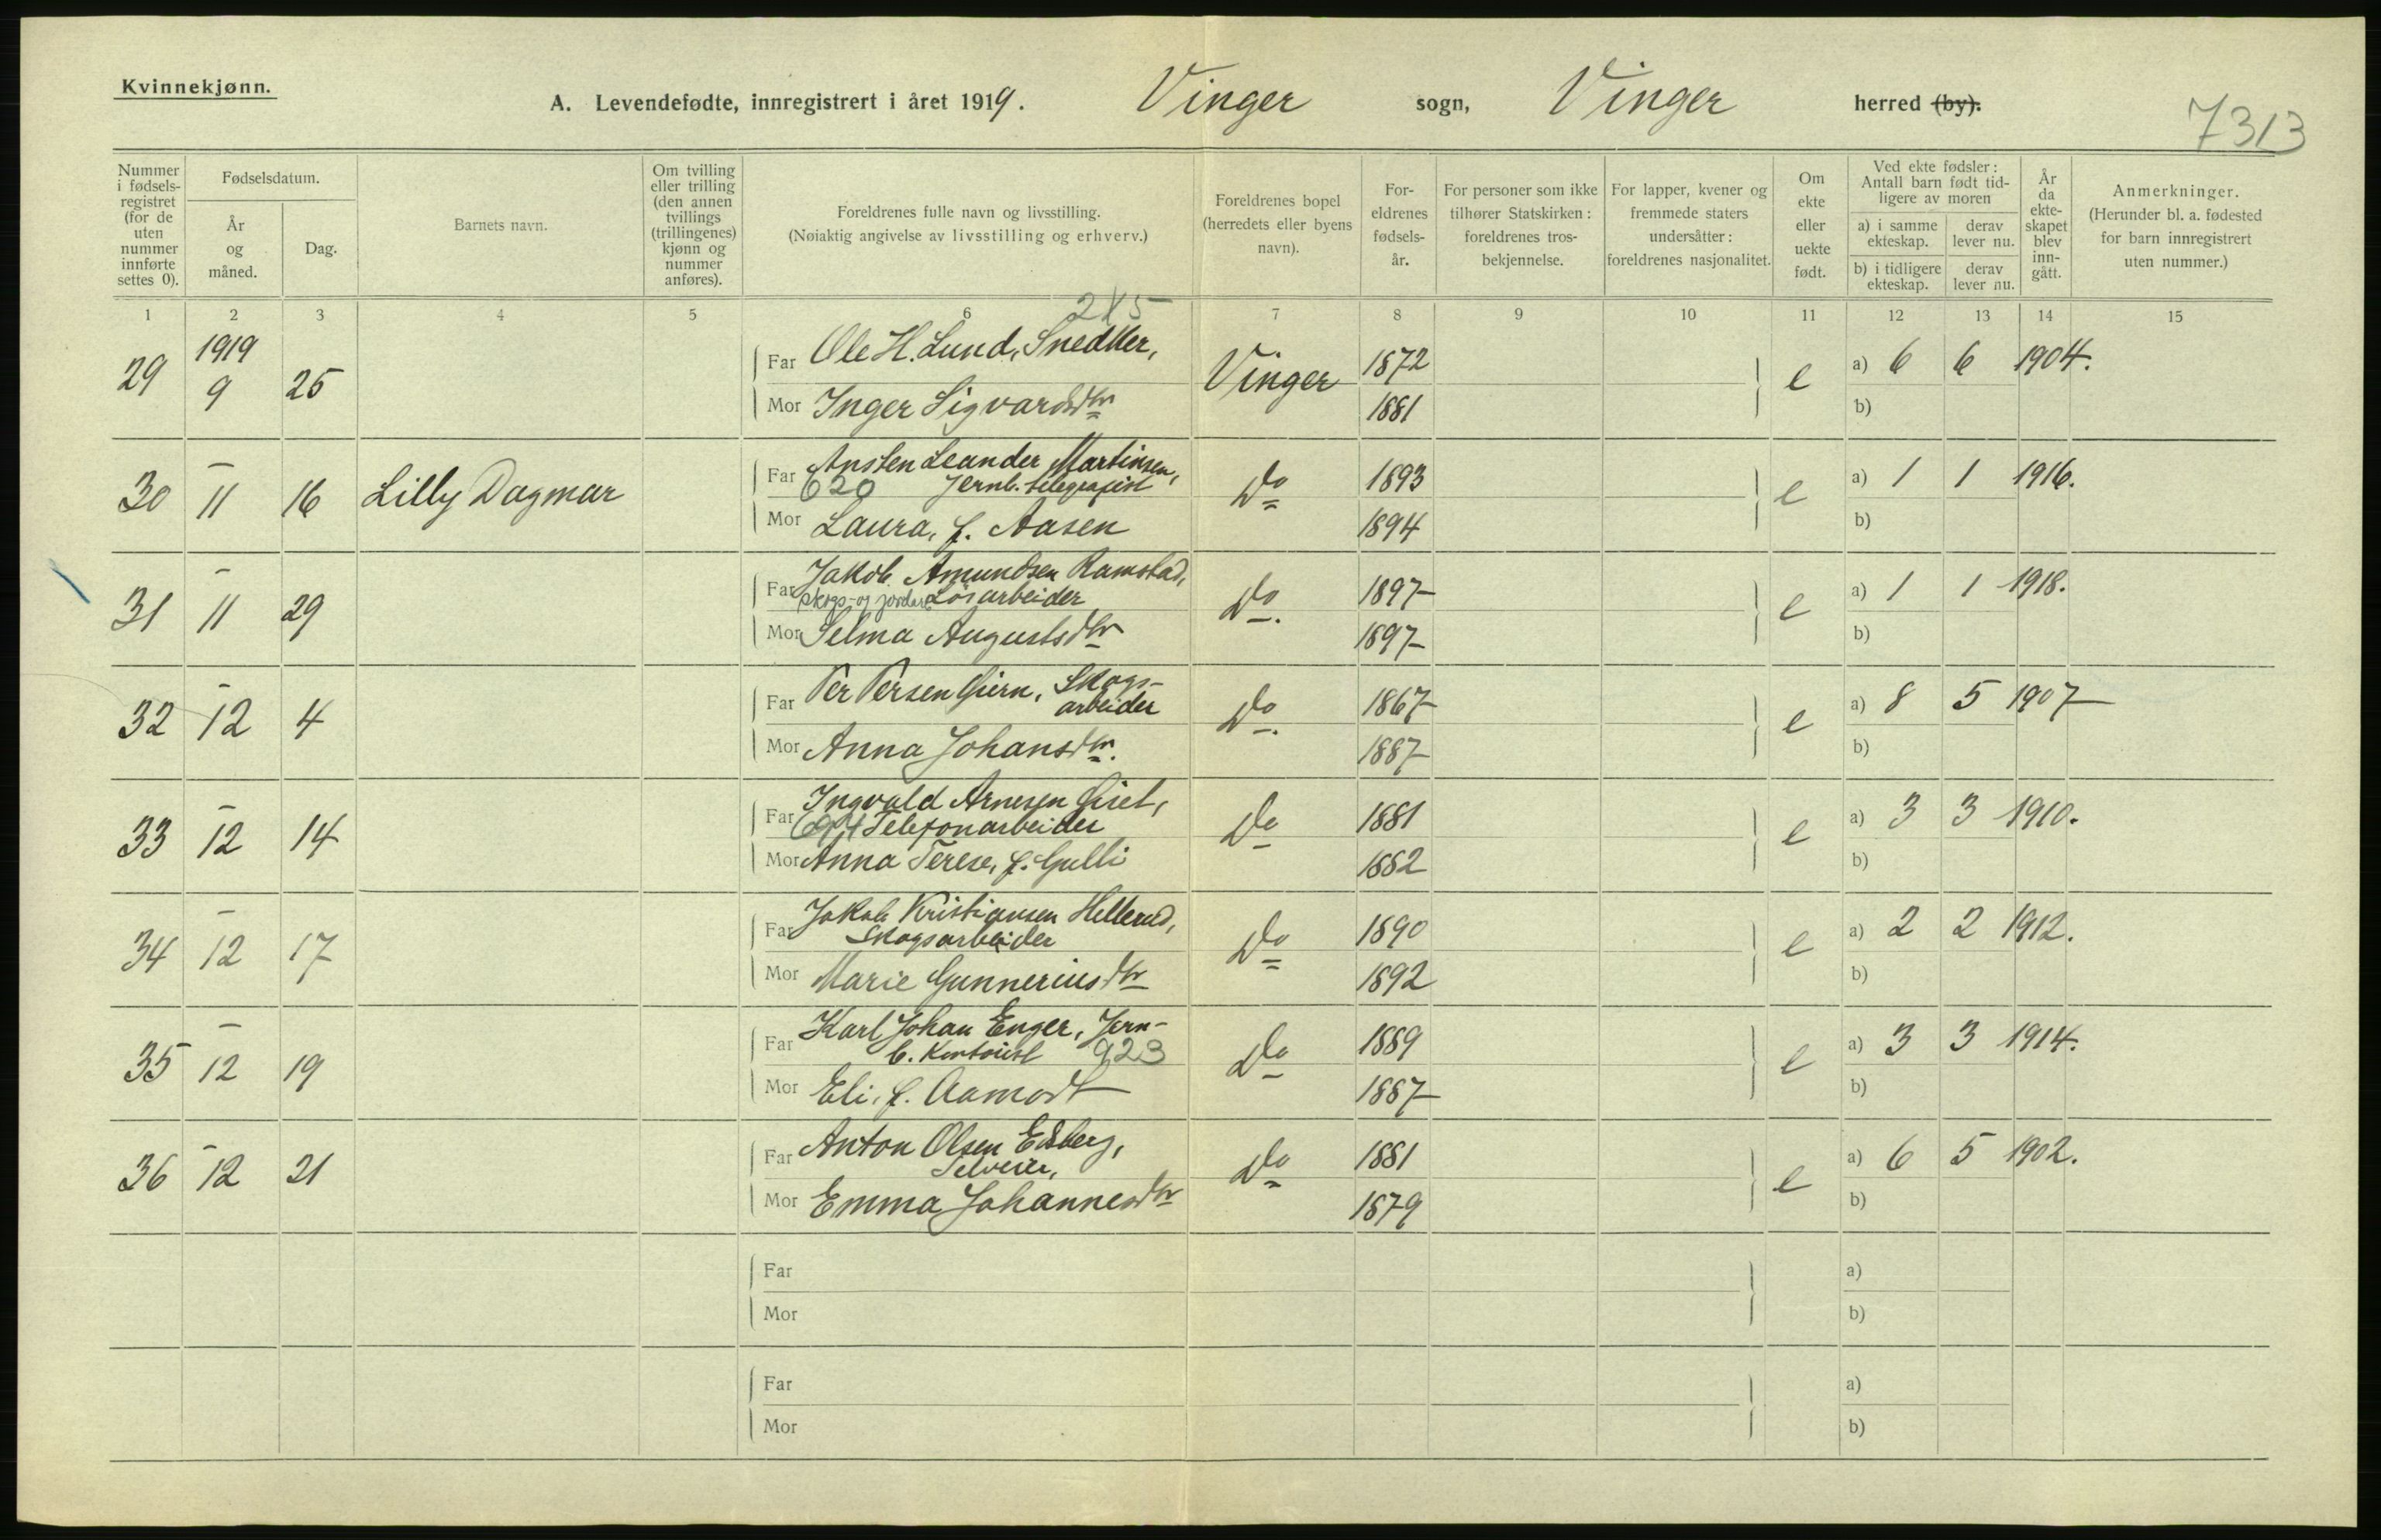 Kvinnekjønn.
A. Levendefødte, innregistrert i året 1919. Vinger sogn, Vinger herred (by).
7313
Nummer i fødsels- registret (for de uten nummer innførte settes 0).
Fødselsdatum.
År og måned.
Dag.
Barnets navn.
Om tvilling eller trilling (den annen tvillings (trillingenes) kjønn og nummer anføres).
Foreldrenes fulle navn og livsstilling.
(Nøiaktig angivelse av livsstilling og erhverv.)
Foreldrenes bopel (herredets eller byens navn).
For- eldrenes fødsels- år.
For personer som ikke tilhører Statskirken: foreldrenes tros- bekjennelse.
For lapper, kvener og fremmede staters undersåtter: foreldrenes nasjonalitet.
Om ekte eller uekte født.
Ved ekte fødsler: Antall barn født tid- ligere av moren
a) i samme ekteskap.
derav lever nu.
b) i tidligere ekteskap.
derav lever nu.
År da ekte- skapet blev inn- gått.
Anmerkninger.
(Herunder bl. a. fødested for barn innregistrert uten nummer.)
1 2 3 4 5 6 7 8 9 10 11 12 13 14 15
2X5
1919
29 9 25 Far Ole H. Lund, Snedker, Vinger 1872 e a) 6 6 1904.
Mor Inger Sigvardsdtr 1881 b)
30 11 16 Lilly Dagmar Far Ansten Leander Martinsen, Do 1893 e a) 1 1 1916.
620 Jernb. telegrafist
Mor Laura, f. Aasen 1894 b)
31 11 29 Far Jakob Amundsen Ramstad, Do. 1897 e a) 1 1 1918.
Skogs- og jordarb. Løsarbeider
Mor Selma Augustsdtr 1897 b)
32 12 4 Far Per Persen Giern, Skogs- Do. 1867 e a) 8 5 1907
arbeider
Mor Anna Johansdtr. 1887 b)
33 12 14 Far Ingvald Arnesen Giset, Do 1881 e a) 3 3 1910.
Telefonarbeider
Mor Anna Terese, f. Gulli 1882 b)
34 12 17 Far Jakob Kristiansen Hellerud, Do 1890 e a) 2 2 1912.
Skogsarbeider
Mor Marie Gunneriusdtr 1892 b)
35 12 19 Far Karl Johan Enger, Jern- Do 1889 e a) 3 3 1914.
b. Kontorist 923
Mor Eli, f. Aamodt 1887 b)
36 12 21 Far Anton Olsen Edsberg, Do 1881 e a) 6 5 1902.
Selveier,
Mor Emma Johannesdtr 1879 b)
Far a)
Mor b)
Far a)
Mor b)